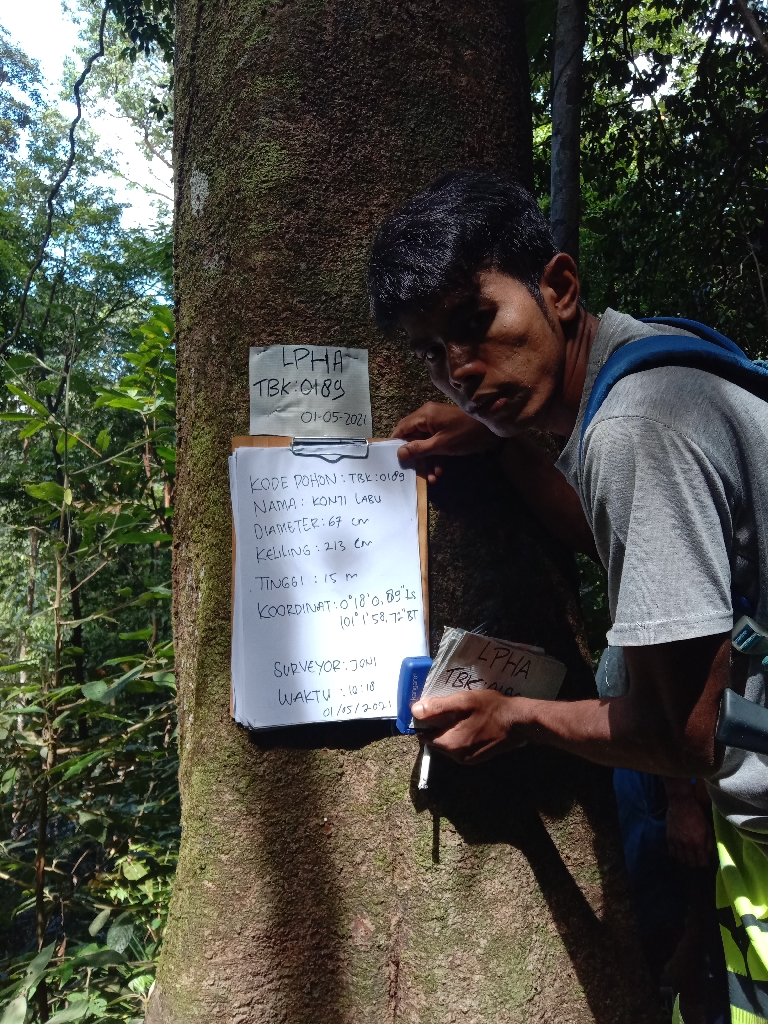 LPHA
TBK:0189
01-05-2021
KODE POHON : TBK:0189
NAMA : KONTI LABU
DIAMETER : 67 cm
KELILING : 213 cm
TINGGI : 15 m
KOORDINAT : 0°18'0,89"LS
101°1'58,72"BT
SURVEYOR : JONI
WAKTU : 10:18
01/05/2021
LPHA